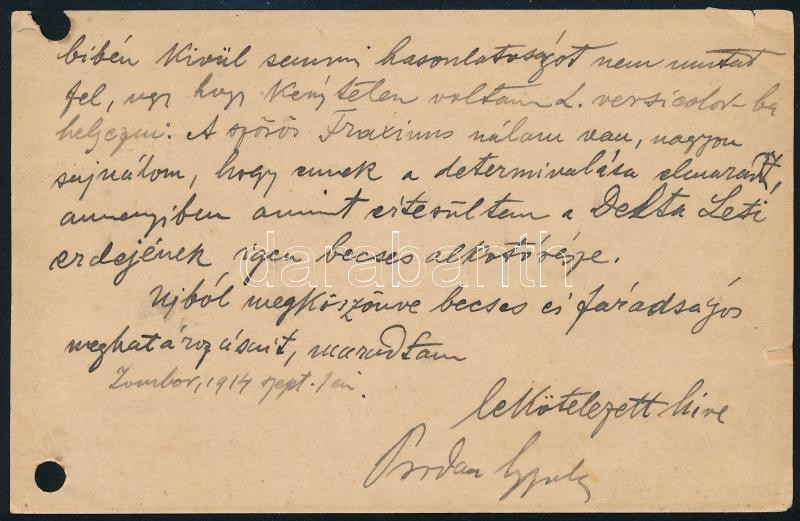 bibén kivül semmi hasonlatoságot nem mutat
fel, ugy hogy kénytelen voltam L. versicolor-ba
helyezni. A szőrös Fraxinus nálam van, nagyon
sajnálom, hogy ennek a determinálása elmaradt,
amennyiben amint értesültem a Delta Letí
erdejének igen becses alkotórésze.
darabanth
Ujból megköszönve becses és fáradságos
meghatározásait, maradtam
Zombor, 1914 szept. 1 én.
lekötelezett híve
Prodan Gyula